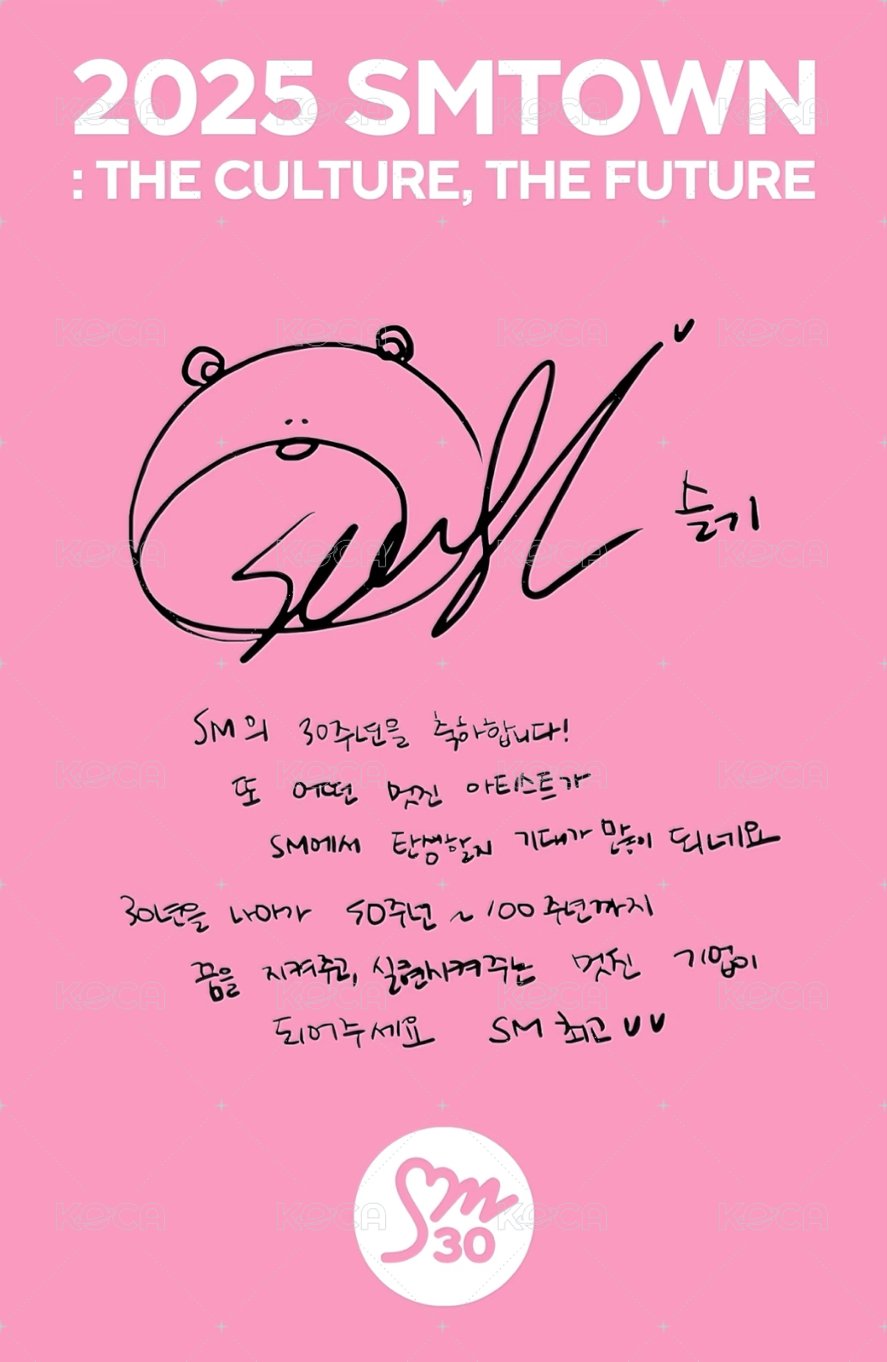 2025 SMTOWN
: THE CULTURE, THE FUTURE
슬기
SM의 30주년을 축하합니다!
또 어떤 멋진 아티스트가
SM에서 탄생할지 기대가 많이 되네요
30년을 나아가 50주년 ~ 100주년까지
꿈을 지켜주고, 실현시켜주는 멋진 기업이
되어주세요 SM 최고
Sm
30
KOCA